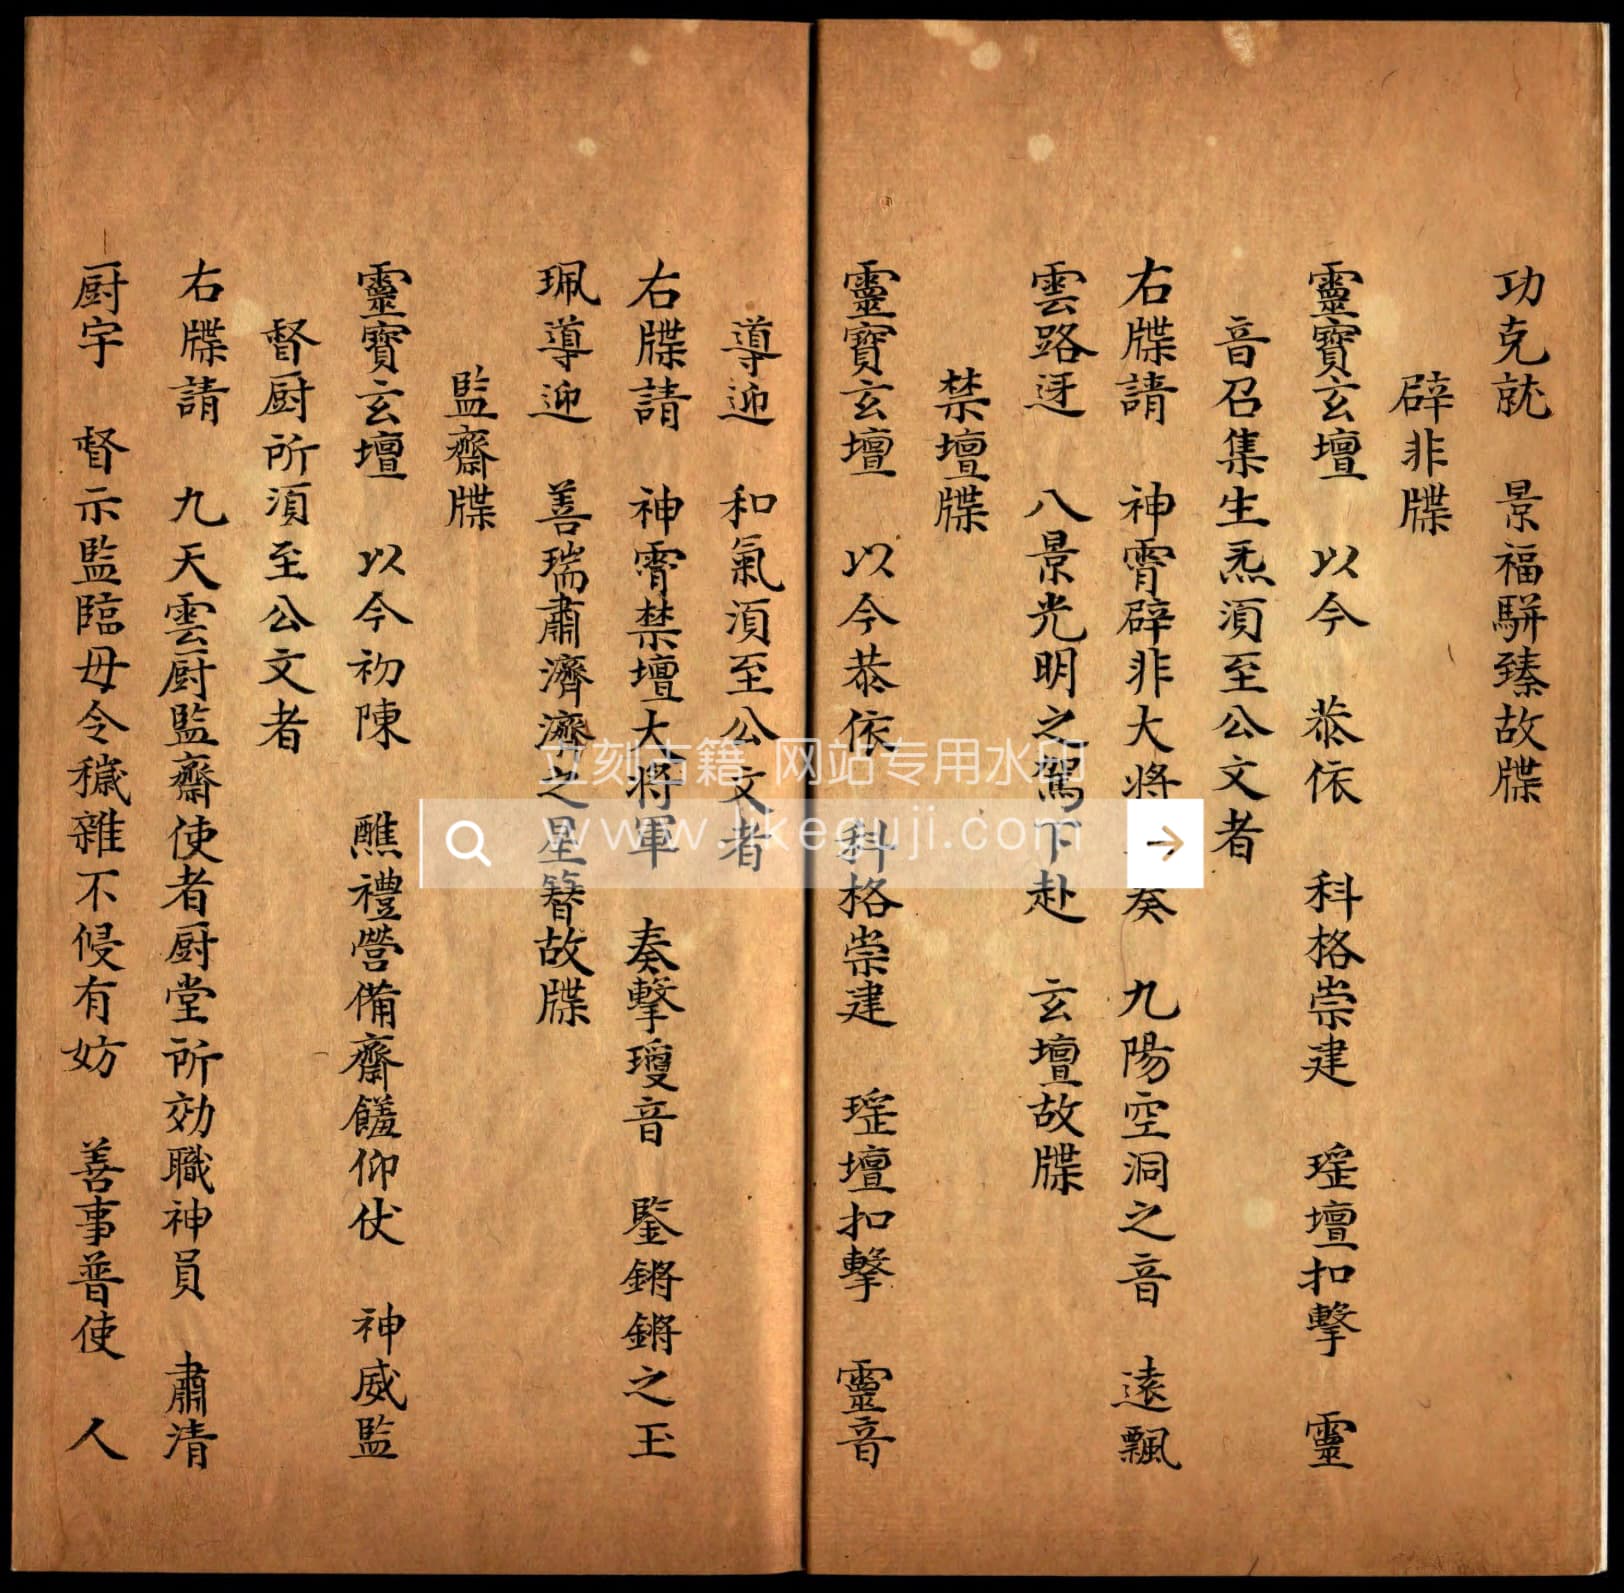 功克就　景福駢臻故牒
辟非牒
靈寶玄壇　以今　恭依　科格崇建　瑤壇扣擊　靈
音召集生炁須至公文者
右牒請　神霄辟非大將　奏　九陽空洞之音　遠飄
雲路迓　八景光明之駕下赴　玄壇故牒
禁壇牒
靈寶玄壇　以今恭依　科格崇建　瑤壇扣擊　靈音
導迎　和氣須至公文者
右牒請　神霄禁壇大將軍　奏擊瓊音　鏘鏘之玉
珮導迎　善瑞肅濟濟之星簪故牒
監齋牒
靈寶玄壇　以今初陳　醮禮營備齋饈仰仗　神威監
督厨所須至公文者
右牒請　九天雲厨監齋使者厨堂所効職神員　肅清
厨宇　督示監臨毋令穢雜不侵有妨　善事普使　人
立刻古籍 网站专用水印
www.lkeguji.com